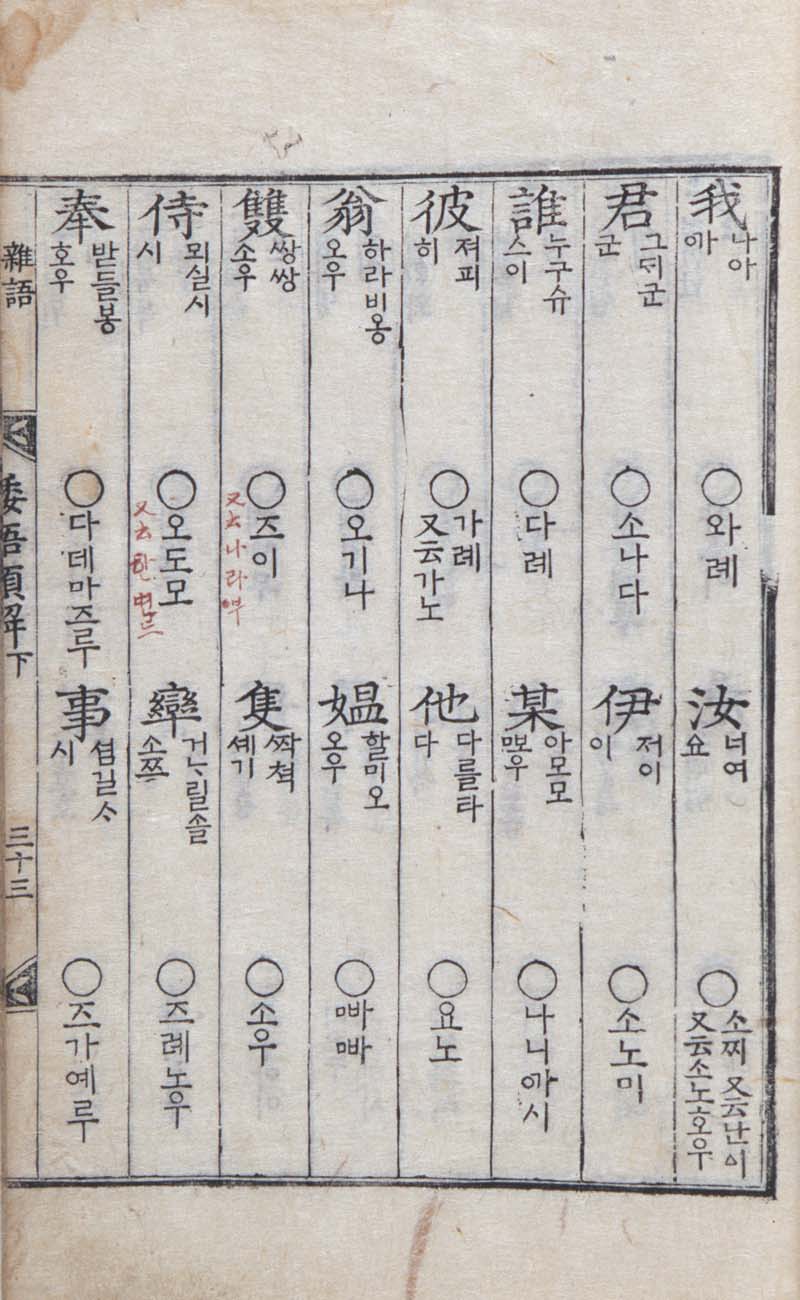 我 나아 ᅁᅡ ○와례
汝 너여 ᅀᅭ ○소찌 又云난ᅀᅵ 又云소노호우
君 그ᄃᆡ군 군 ○소나다
伊 저이 이 ○소노미
誰 누구슈 스이 ○다례
某 아모모 ᄜᅩ우 ○나니ᅁᅡ시
彼 져피 히 ○가례 又云가노
他 다를타 다 ○요노
翁 하라비옹 오우 ○오기나
媼 할미오 오우 ○ᄜᅡᄜᅡ
雙 쌍쌍 소우 ○즈이 又云나라부
隻 ᄧᅡᆨ쳑 셰기 ○소우
侍 뫼실시 시 ○오도모 又云
거ᄂᆞ릴솔 소쯔 ○즈례노우
奉 받들봉 호우 ○다데마즈루
事 셤길ᄉᆞ 시 ○즈가예루
雜語 倭語類解下 三十三